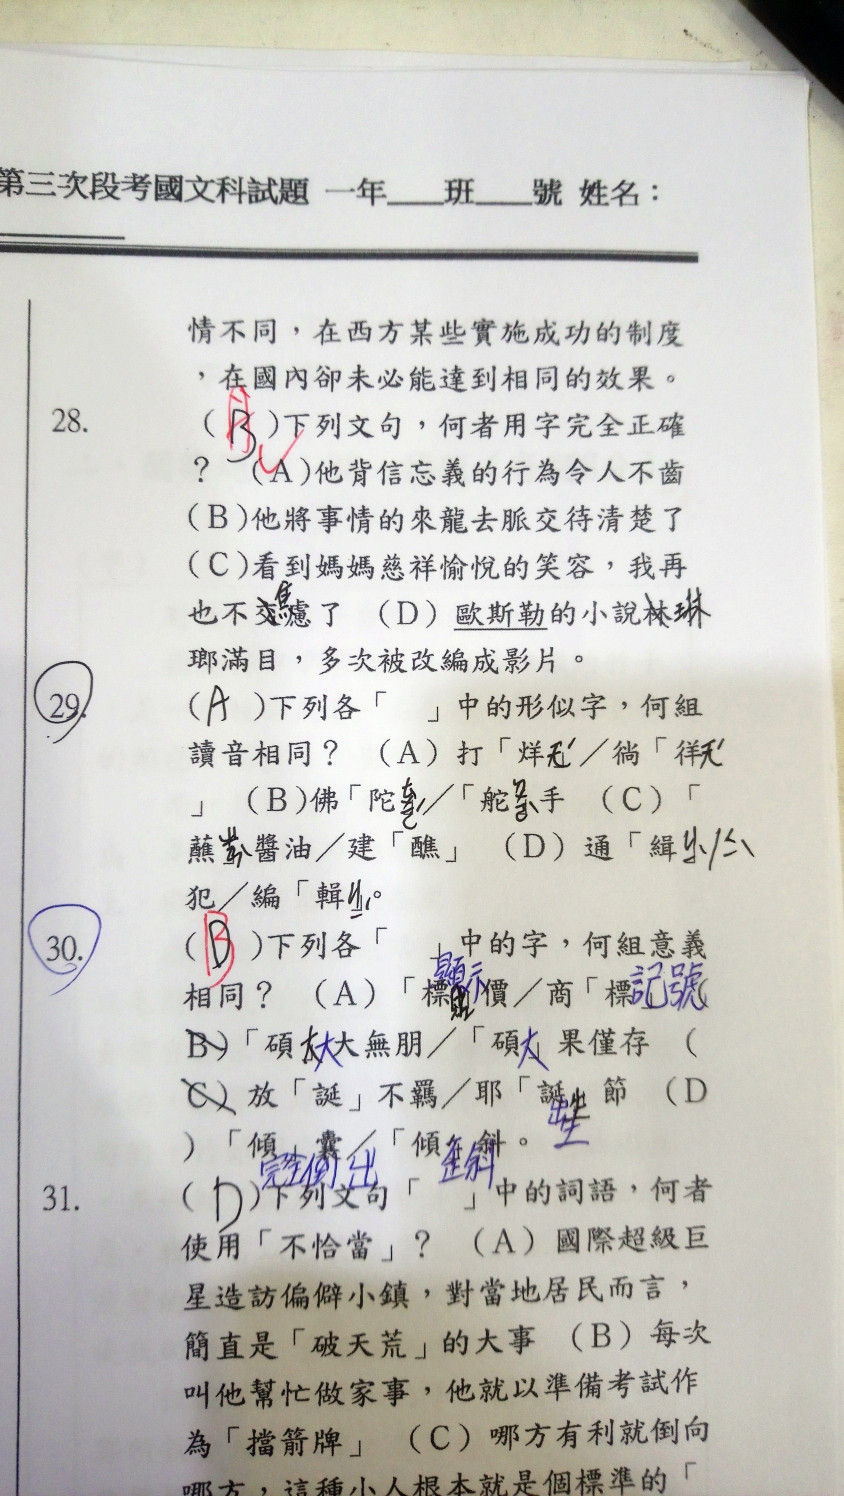 第三次段考國文科試題 一年____班____號 姓名：
情不同，在西方某些實施成功的制度
，在國內卻未必能達到相同的效果。
28. （B）下列文句，何者用字完全正確
？ （A）他背信忘義的行為令人不齒
（B）他將事情的來龍去脈交待清楚了
（C）看到媽媽慈祥愉悅的笑容，我再
也不交慮了 （D）歐斯勒的小說林琳
瑯滿目，多次被改編成影片。
29. （A）下列各「　」中的形似字，何組
讀音相同？ （A）打「烊」／徜「徉
」 （B）佛「陀」／「舵」手 （C）「
蘸」醬油／建「醮」 （D）通「緝」
犯／編「輯」。
30. （B）下列各「　」中的字，何組意義
相同？ （A）「標」價／商「標」（
顯示 記號
B）「碩」大無朋／「碩」果僅存 （
大 大
C）放「誕」不羈／耶「誕」節 （D
出生
）「傾」囊／「傾」斜。
完全倒出 歪斜
31. （D）下列文句「　」中的詞語，何者
使用「不恰當」？ （A）國際超級巨
星造訪偏僻小鎮，對當地居民而言，
簡直是「破天荒」的大事 （B）每次
叫他幫忙做家事，他就以準備考試作
為「擋箭牌」 （C）哪方有利就倒向
哪方，這種小人根本就是個標準的「